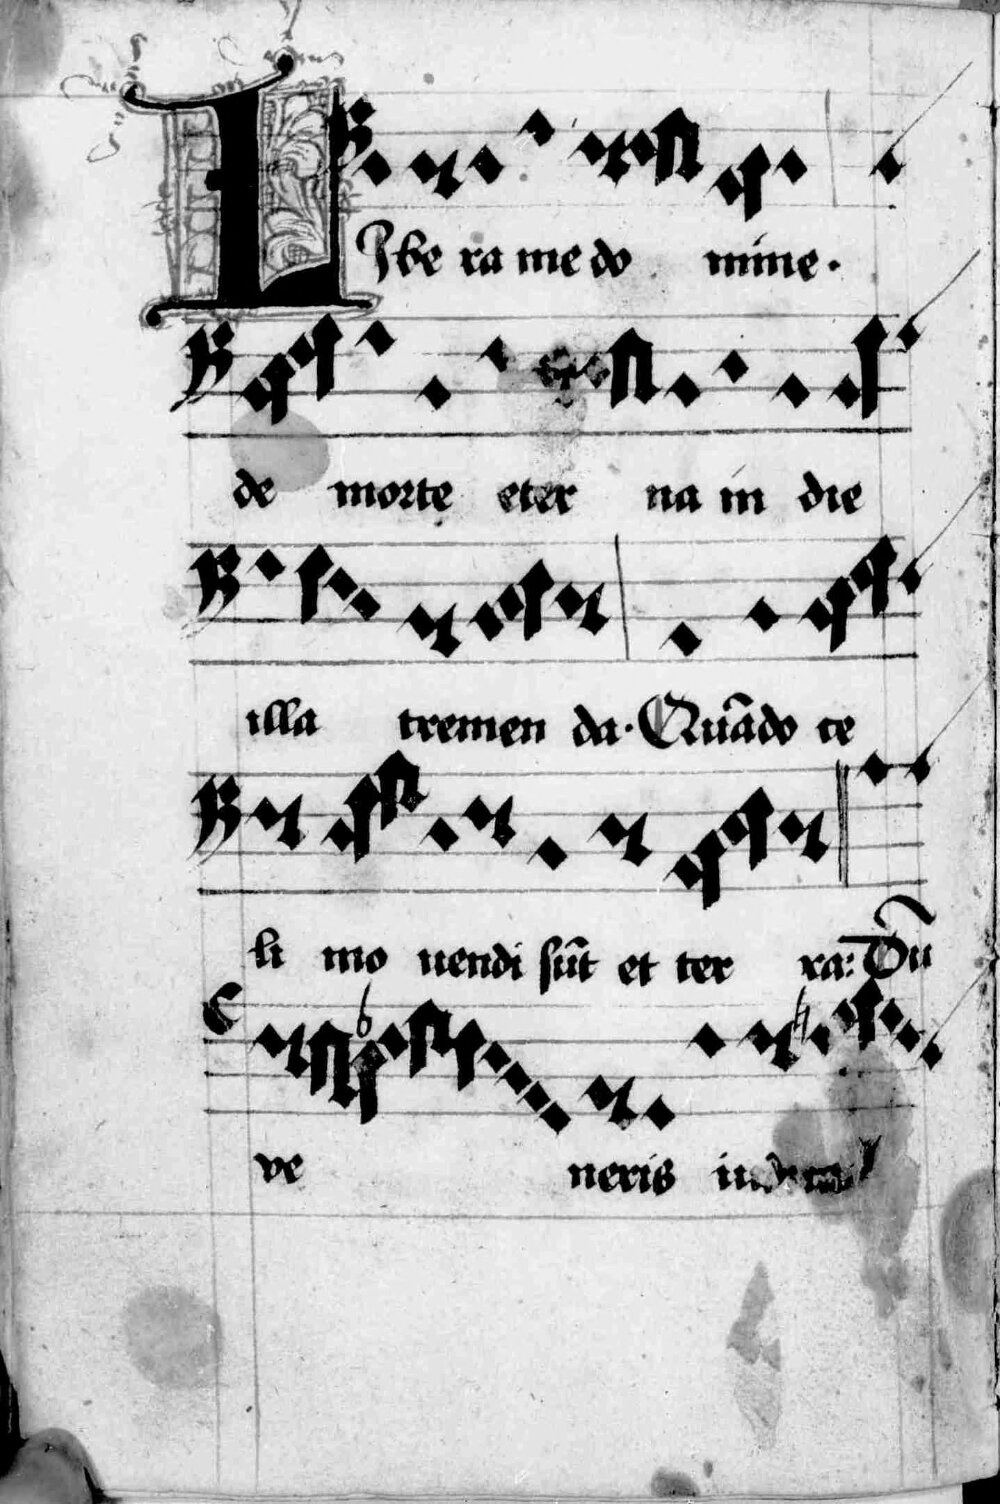 LIbe ra me do mine.
de morte eter na in die
illa tremen da. Quãdo ce
li mo uendi sũt et ter ra: Dũ
ve neris